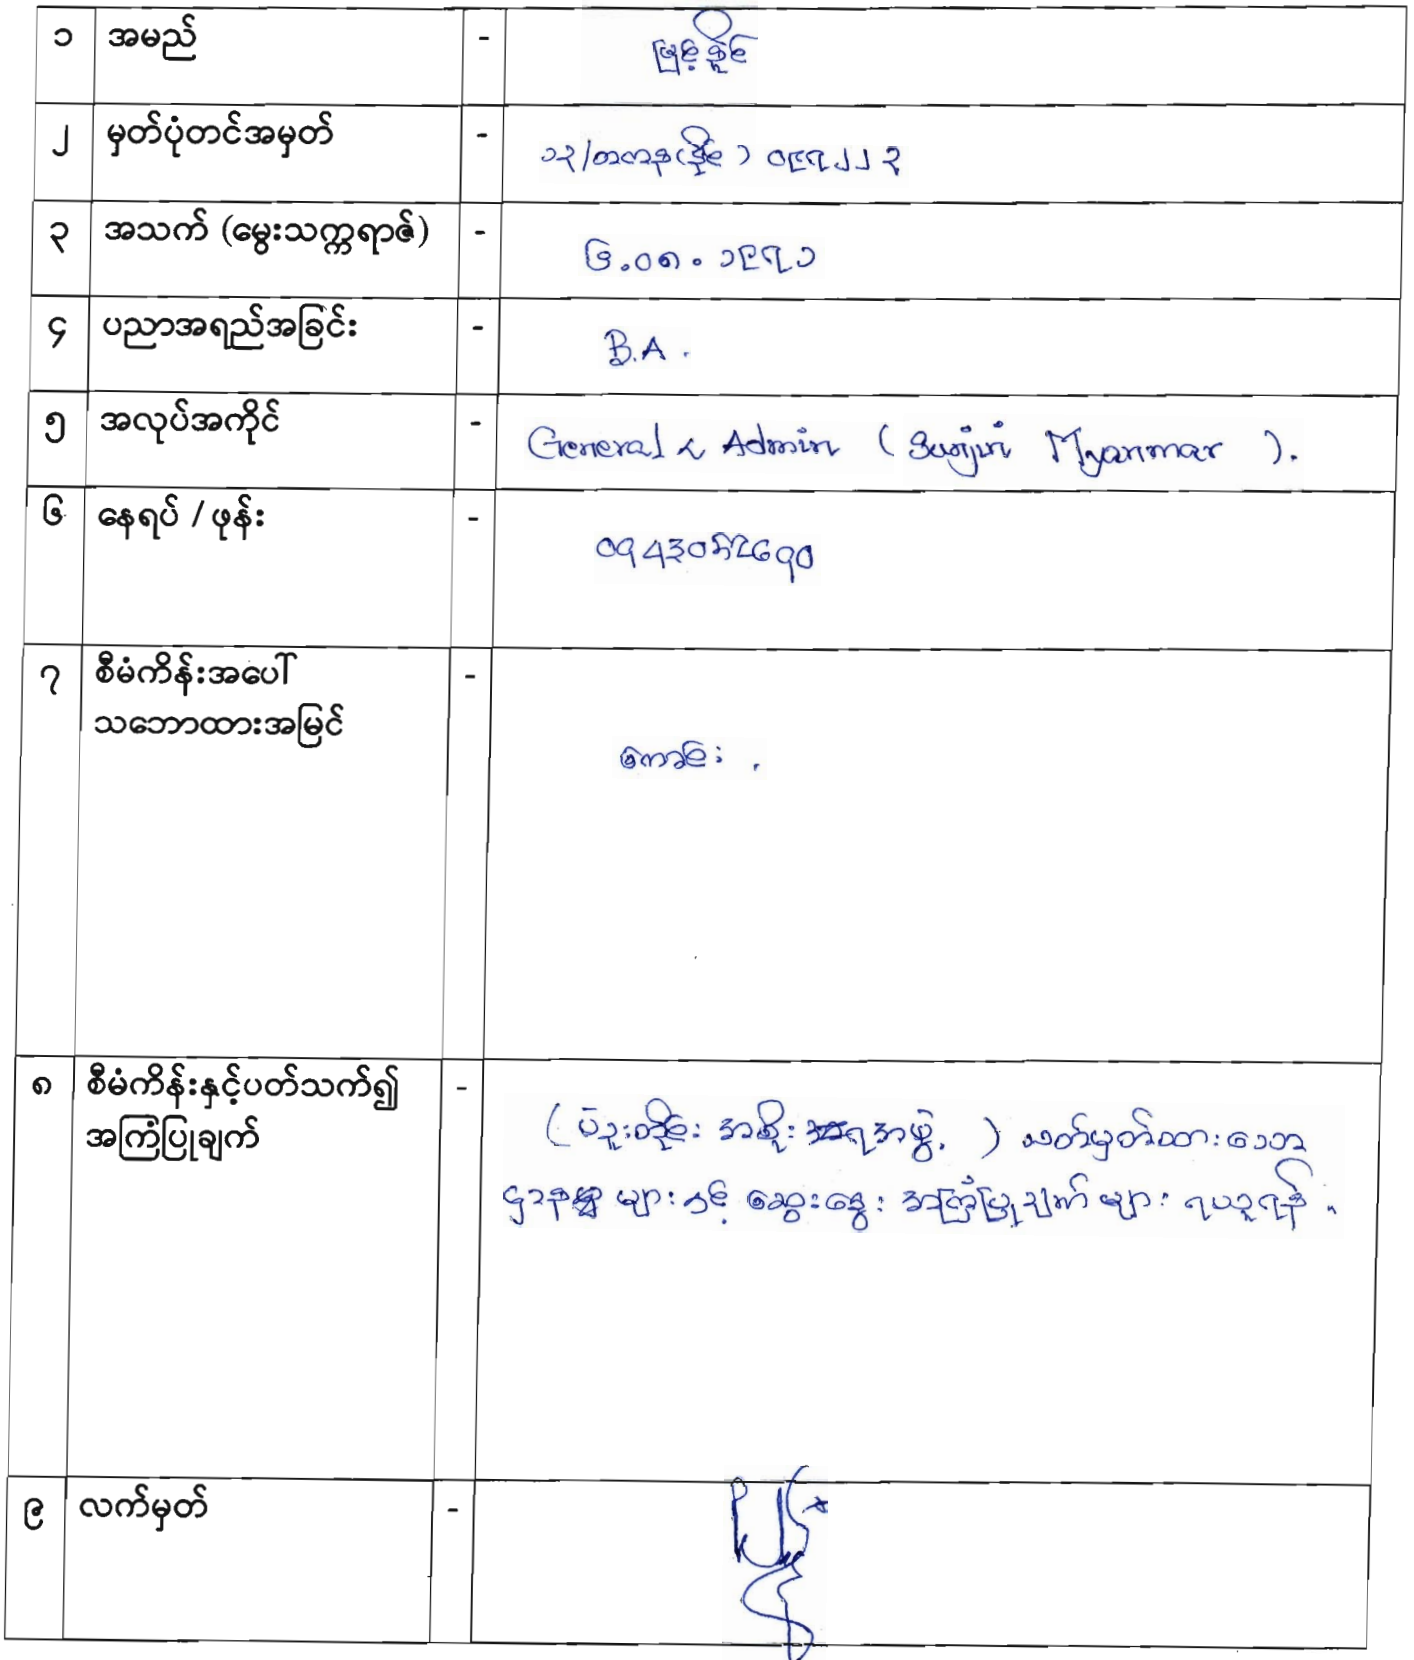 ၁ အမည် - မြင့်ခိုင်
၂ မှတ်ပုံတင်အမှတ် - ၁၃/တကန(နိုင်) ၀၉၇၂၂၃
၃ အသက် (မွေးသက္ကရာဇ်) - ၆.၀၈.၁၉၇၁
၄ ပညာအရည်အခြင်း - B.A.
၅ အလုပ်အကိုင် - General & Admin ( Sunjin Myanmar ).
၆ နေရပ် / ဖုန်း -
၇ စီမံကိန်းအပေါ် -
သဘောထားအမြင်
ကောင်း
၈ စီမံကိန်းနှင့်ပတ်သက်၍ -
အကြံပြုချက်
( ပဲခူးတိုင်း အစိုးရအဖွဲ့ ) သတ်မှတ်ထားသော
ဌာနများနှင့် ဆွေးနွေး အကြံပြုချက် များ ရယူရန်။
၉ လက်မှတ် -